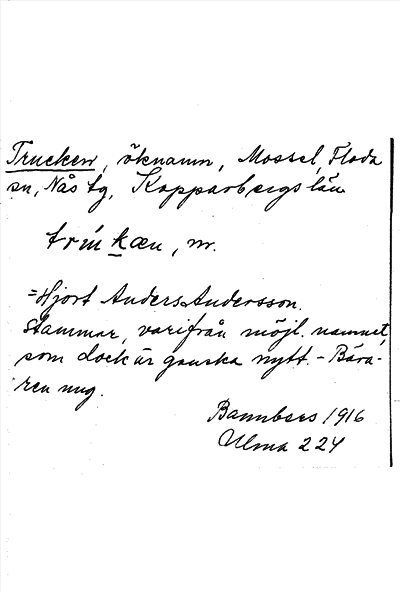 Trucken, öknamn, Mossel, Floda
sn, Nås tg, Kopparbergs län
trúkæn, m.
=Hjort Anders Andersson.
Stammar, varifrån möjl. namnet,
som dock är ganska nytt. - Bära-
ren ung.
1916
Ulma 224